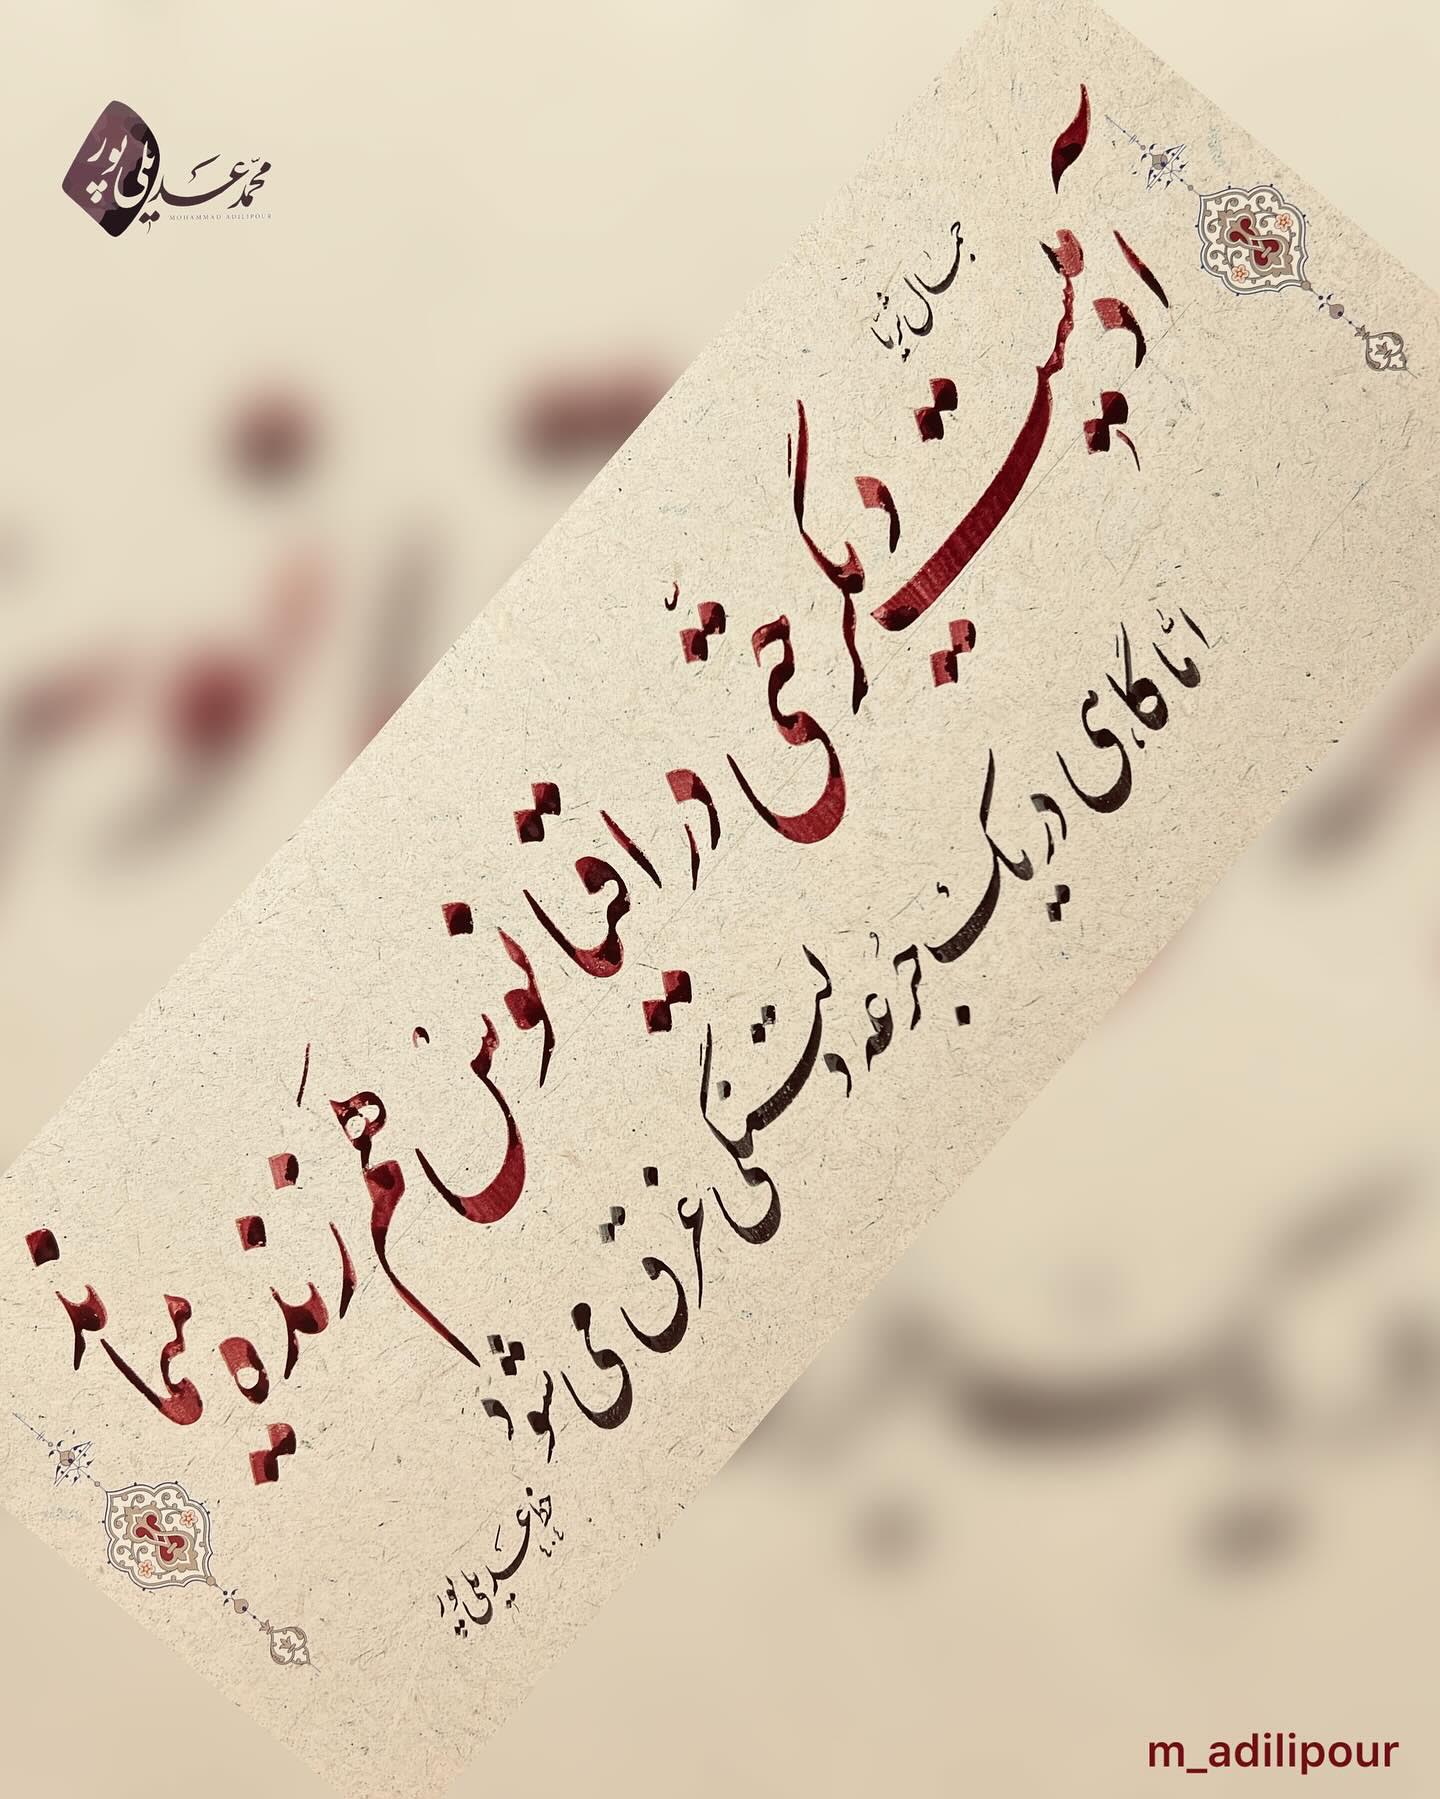 محمّد عدیلی پور
MOHAMMAD ADILIPOUR
جمال ثریّا
آدمیست دیگر حتّی در اقیانوس هم زنده میماند
امّا گاهی در یک جُرعه دلتنگی غرق می شود
عدیلی پور
m_adilipour